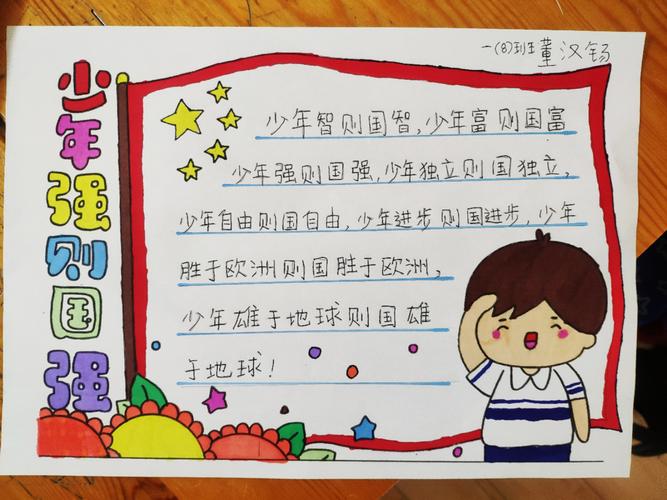 一(8)班董汉钖
少年强则国强
少年智则国智,少年富则国富
少年强则国强,少年独立则国独立,
少年自由则国自由,少年进步则国进步,少年
胜于欧洲则国胜于欧洲,
少年雄于地球则国雄
于地球!